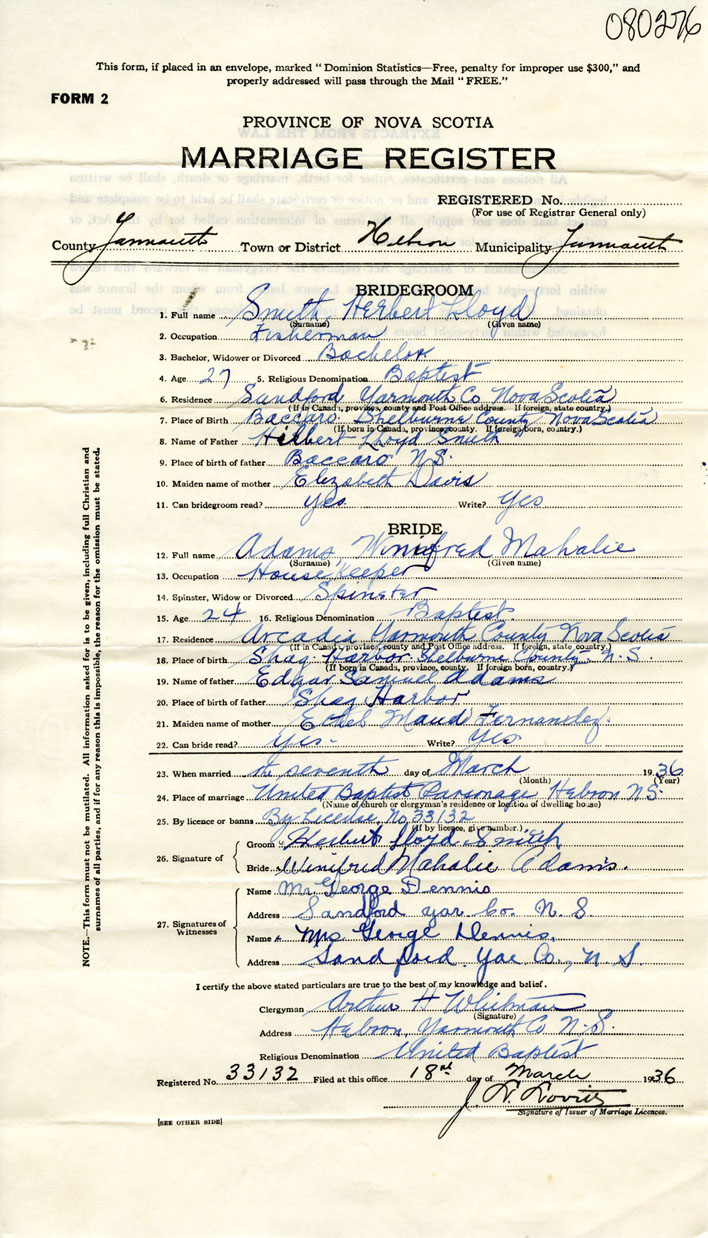 080276
This form, if placed in an envelope, marked "Dominion Statistics—Free, penalty for improper use $300," and
properly addressed will pass through the Mail "FREE."
FORM 2
PROVINCE OF NOVA SCOTIA
MARRIAGE REGISTER
REGISTERED No.
(For use of Registrar General only)
County Yarmouth Town or District Hebron Municipality Yarmouth
BRIDEGROOM
1. Full name Smith Herbert Lloyd
(Surname) (Given name)
2. Occupation Fisherman
3. Bachelor, Widower or Divorced Bachelor
4. Age 27 5. Religious Denomination Baptist
6. Residence Sandford Yarmouth Co Nova Scotia
(If in Canada, province, county and Post Office address. If foreign, state country.)
7. Place of Birth Baccaro Shelburne County Nova Scotia
(If born in Canada, province, county. If foreign born, country.)
8. Name of Father Hilbert Lloyd Smith
9. Place of birth of father Baccaro N.S.
10. Maiden name of mother Elizabeth Davis
11. Can bridegroom read? yes Write? Yes
BRIDE
12. Full name Adams Winifred Mahalie
(Surname) (Given name)
13. Occupation House Keeper
14. Spinster, Widow or Divorced Spinster
15. Age 24 16. Religious Denomination Baptist
17. Residence Arcadia Yarmouth County Nova Scotia
(If in Canada, province, county and Post Office address. If foreign, state country.)
18. Place of birth Shag Harbor Shelburne County N.S.
(If born in Canada, province, county. If foreign born, country.)
19. Name of father Edgar Samuel Adams
20. Place of birth of father Shag Harbor
21. Maiden name of mother Ethel Maud Fernandez.
22. Can bride read? Yes. Write? Yes
23. When married seventh day of March 1936
(Month) (Year)
24. Place of marriage United Baptist Parsonage Hebron N.S.
(Name of church or clergyman's residence or location of dwelling house)
25. By licence or banns By License No 33132
(If by licence, give number.)
26. Signature of
Groom Herbert Lloyd Smith
Bride Winifred Mahalie Adams.
27. Signatures of Witnesses
Name Mr George Dennis
Address Sandford yar Co. N.S.
Name Mrs George Dennis.
Address Sandford. Yar Co., N.S
I certify the above stated particulars are true to the best of my knowledge and belief.
Clergyman Arthur H Whitman
(Signature)
Address Hebron, Yarmouth Co N.S.
Religious Denomination United Baptist
Registered No. 33132 Filed at this office 18 day of March 1936
Signature of Issuer of Marriage Licences.
[SEE OTHER SIDE]
NOTE.—This form must not be mutilated. All information asked for is to be given, including full Christian and
surnames of all parties, and if for any reason this is impossible, the reason for the omission must be stated.